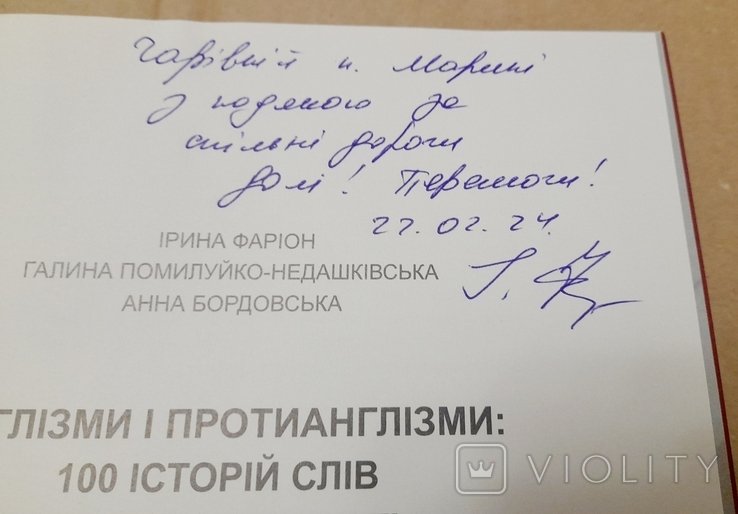 Чарівній п. Марині
з подякою за
спільні дороги
долі! Перемоги!
22.02.24.
ІРИНА ФАРІОН
ГАЛИНА ПОМИЛУЙКО-НЕДАШКІВСЬКА
АННА БОРДОВСЬКА
ГЛІЗМИ І ПРОТИАНГЛІЗМИ:
100 ІСТОРІЙ СЛІВ
VIOLITY